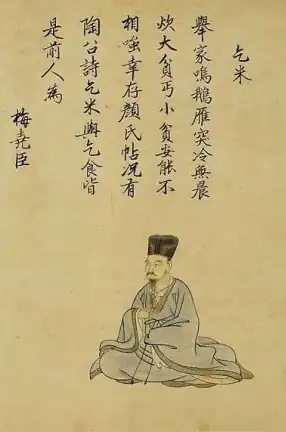 乞米
舉家鳴鵝雁突冷無晨
炊大貧丐小貧安能不
相嗤幸存顏氏帖況有
陶公詩乞米與乞食皆
是前人為
梅堯臣